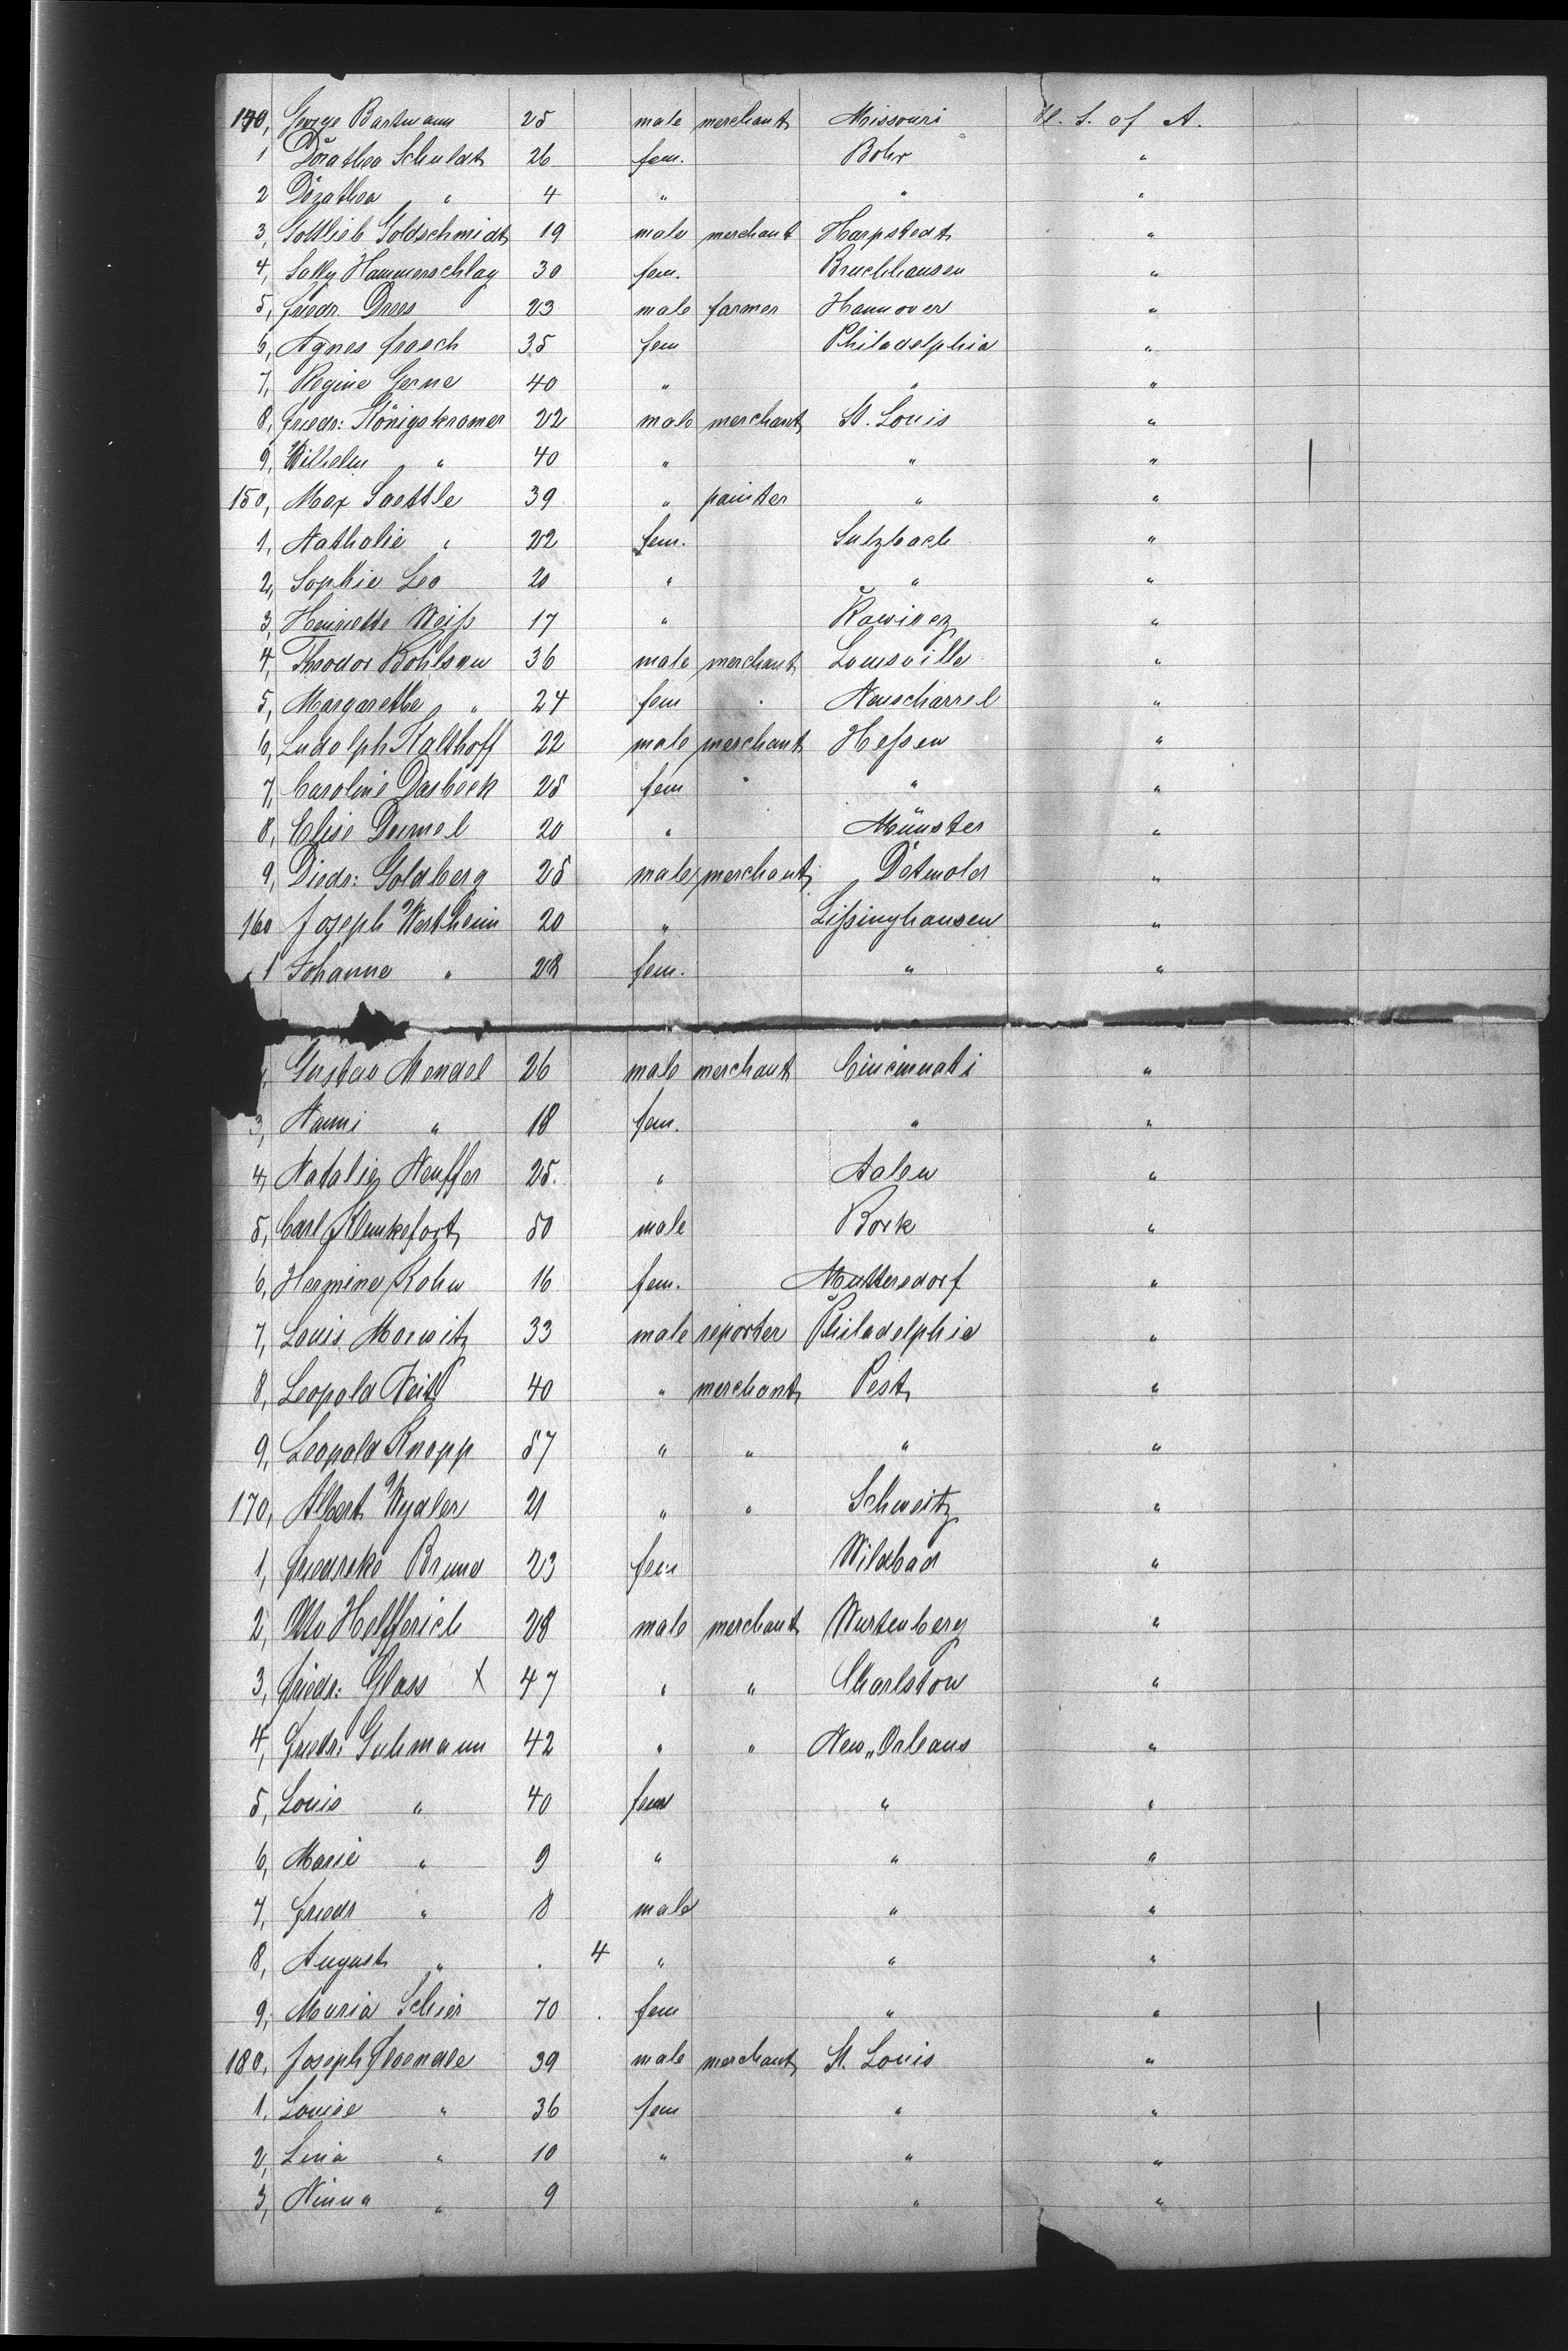 140, George Bartmann 25 male merchant Missouri U. S. of A.
1 Dorathea Schuldt 26 fem. Bohr "
2 Dorathea " 4 " " "
3, Gottlieb Goldschmidt 19 male merchant Harpstedt "
4, Sally Hammerschlag 30 fem. Bruchhausen "
5, Friedr. Drees 23 male farmer Hannover "
6, Agnes Frosch 35 fem Philadelphia "
7, Regine Gerne 40 " " "
8, Friedr: Königskramer 22 male merchant St. Louis "
9, Wilhelm " 40 " " "
150, Max Saettle 39 " painter " "
1, Nathalie " 22 fem. Sulzbach "
2, Sophie Leo 20 " " "
3, Henriette Weiß 17 " "
4, Theodor Bohlsen 36 male merchant Louisville "
5, Margarethe " 24 fem Neuscharrel "
6, Ludolph Kalthoff 22 male merchant Heßen "
7, Caroline Dasbeck 25 fem " "
8, Elise Deimel 20 " Münster "
9, Diedr: Goldberg 25 male merchant Detmold "
160 Joseph Wertheim 20 " Lißinghausen "
1 Johanne " 28 fem. " "
Gustav Mendel 26 male merchant Cincinnati "
3, Nanni " 18 fem. " "
4, Natalie Neuffer 25. " Aalen "
5, Carl Klunkefort 50 male Bork "
6, Hermine Kohn 16 fem. Muttersdorf "
7, Louis Morwitz 33 male reporter Philadelphia "
8, Leopold Veit 40 " merchant Pest "
9, Leopold Knopp 57 " " " "
170, Albert Wydler 21 " " Schweitz "
1, Friedreke Bruno 23 fem Wildbad "
2, Otto Helfferich 28 male merchant Wurtenberg "
3, Friedr: Glass X 47 " " Charlston "
4, Friedr: Guhmann 42 " " New„Orleans "
5, Louis " 40 fem " "
6, Marie " 9 " " "
7, Friedr " 8 male " "
8, August " . 4 " " "
9, Maria Schier 70 . fem " "
180, Joseph 39 male merchant St. Louis "
1, Louise " 36 fem " "
2, Lina " 10 " " "
3, Minna " 9 " "